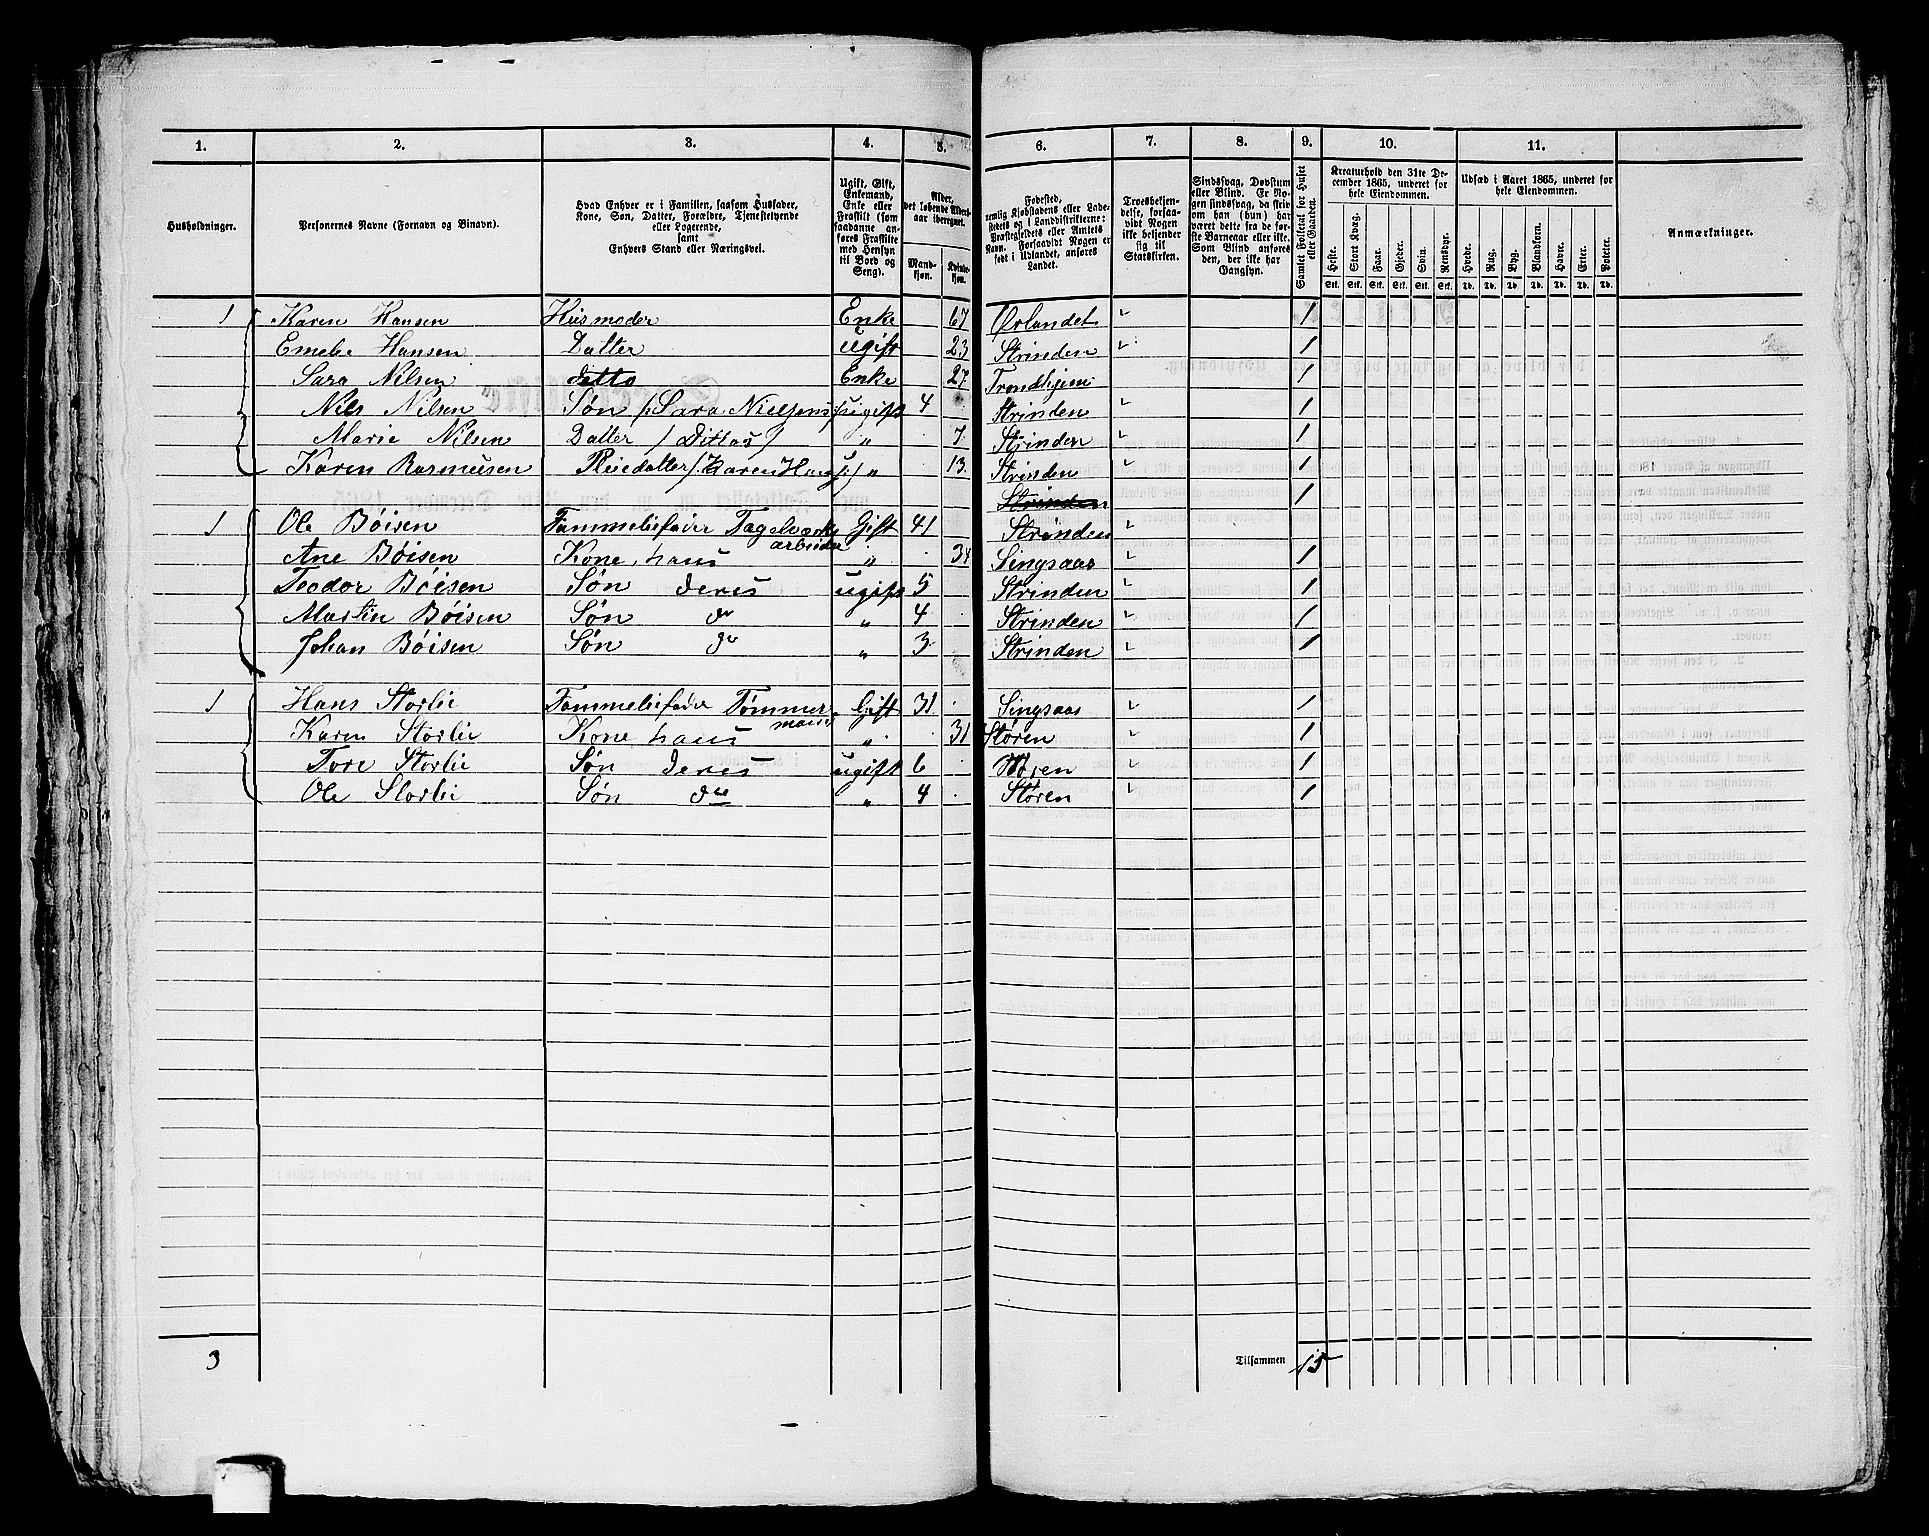 1. 2. 3. 4. 5. 6. 7. 8. 9. 10. 11.
Husholdninger.
Personernes Navne (Fornavn og Binavn).
Hvad Enhver er i Familien, saasom Husfader,
Kone, Søn, Datter, Forældre, Tjenestetyende
eller Logerende,
samt
Enhvers Stand eller Næringsvei.
Ugift, Gift,
Enkemand,
Enke eller
Fraskilt (som
saadanne an-
føres Fraskilte
med Hensyn
til Bord og
Seng).
Alder,
det løbende Alders-
aar iberegnet.
Mand-
kjøn.
Kvinde-
kjøn.
Fødested,
nemlig Kjøbstadens eller Lade-
stedets og i Landdistrikterne:
Præstegjeldets eller Amtets
Navn. Forsaavidt Nogen er
født i Udlandet, anføres
Landet.
Troesbekjen-
delse, forsaa-
vidt Nogen
ikke bekjender
sig til
Statskirken.
Sindssvag, Døvstum
eller Blind. Er No-
gen sindssvag, da skrives,
om han (hun) har
været dette fra de før-
ste Barneaar eller ikke.
Som Blind anføres
den, der ikke har
Gangsyn.
Samlet Folketal for Huset
eller Gaarden.
Kreaturhold den 31te De-
cember 1865, underet for
hele Eiendommen.
Heste. Stort Kvæg. Faar. Gjeder. Svin. Rensdyr.
Stk. Stk. Stk. Stk. Stk. Stk.
Udsæd i Aaret 1865, underet for
hele Eiendommen.
Hvede. Rug. Byg. Blandkorn. Havre. Erter. Poteter.
Td. Td. Td. Td. Td. Td. Td.
Anmærkninger.
1 Karen Hansen Husmoder Enke 67 Ørlandet 1
Hansen Datter ugift 23 Strinden 1
Sara Nilsen ditto Enke 27 Trondhjem 1
Nils Nilsen Søn /: Sara Nielsens :/ ugift 4 Strinden 1
Marie Nilsen Datter / Dittos / " 7 Strinden 1
Karen Rasmusen Pleiedatter /: Karen Hans :/ " 13 Strinden 1
Strinden 1
1 Ole Böisen Fammeliefader Gift 41 Strinden
arbeider
Ane Böisen Kone hans " 34 Singsaas 1
Teodor Böisen Søn deres ugift 5 Strinden 1
Martin Böisen Søn do " 4 Strinden 1
Johan Böisen Søn do " 3 Strinden 1
1 Hans Storlie Fammeliefader Tømmer Gift 31 Singsaas 1
mand
Karen Storlie Kone hans " 31 Støren 1
Tore Storlie Søn deres ugift 6 Støren 1
Ole Storlie Søn do " 4 Støren 1
3 Tilsammen 15